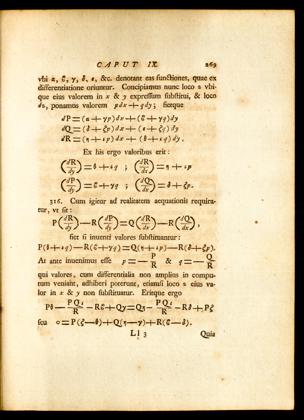 CAPUT IX. 269
vbi α, ϐ, γ, δ, ε, &c. denotant eas functiones, quae ex
differentiatione oriuntur. Concipiamus nunc loco z vbi-
que eius valorem in x & y expressum substitui, & loco
dz, ponamus valorem pdx+qdy; fietque
dP=(α+γp)dx+(ϐ+γq)dy
dQ=(δ+ζp)dx+(ε+ζq)dy
dR=(η+ιp)dx+(θ+ιq)dy.
Ex his ergo valoribus erit:
(dR/dy)=θ+ιq ; (dR/dx)=η+ιp
(dP/dy)=ϐ+γq ; (dQ/dx)=δ+ζp.
316. Cum igitur ad realitatem aequationis requira-
tur, vt sit:
P(dR/dy)−R(dP/dy)=Q(dR/dx)−R(dQ/dx),
fiet si inuenti valores substituantur:
P(θ+ιq)−R(ϐ+γq)=Q(η+ιp)−R(δ+ζp).
At ante inuenimus esse p=−P/R & q=−Q/R
qui valores, cum differentialia non amplius in compu-
tum veniant, adhiberi poterunt, etiamsi loco z eius va-
lor in x & y non substituatur. Eritque ergo
Pθ−PQι/R−Rϐ+Qγ=Qη−PQι/R−Rδ+Pζ
seu 0=P(ζ−θ)+Q(η−γ)+R(ϐ−δ).
Ll 3 Quia